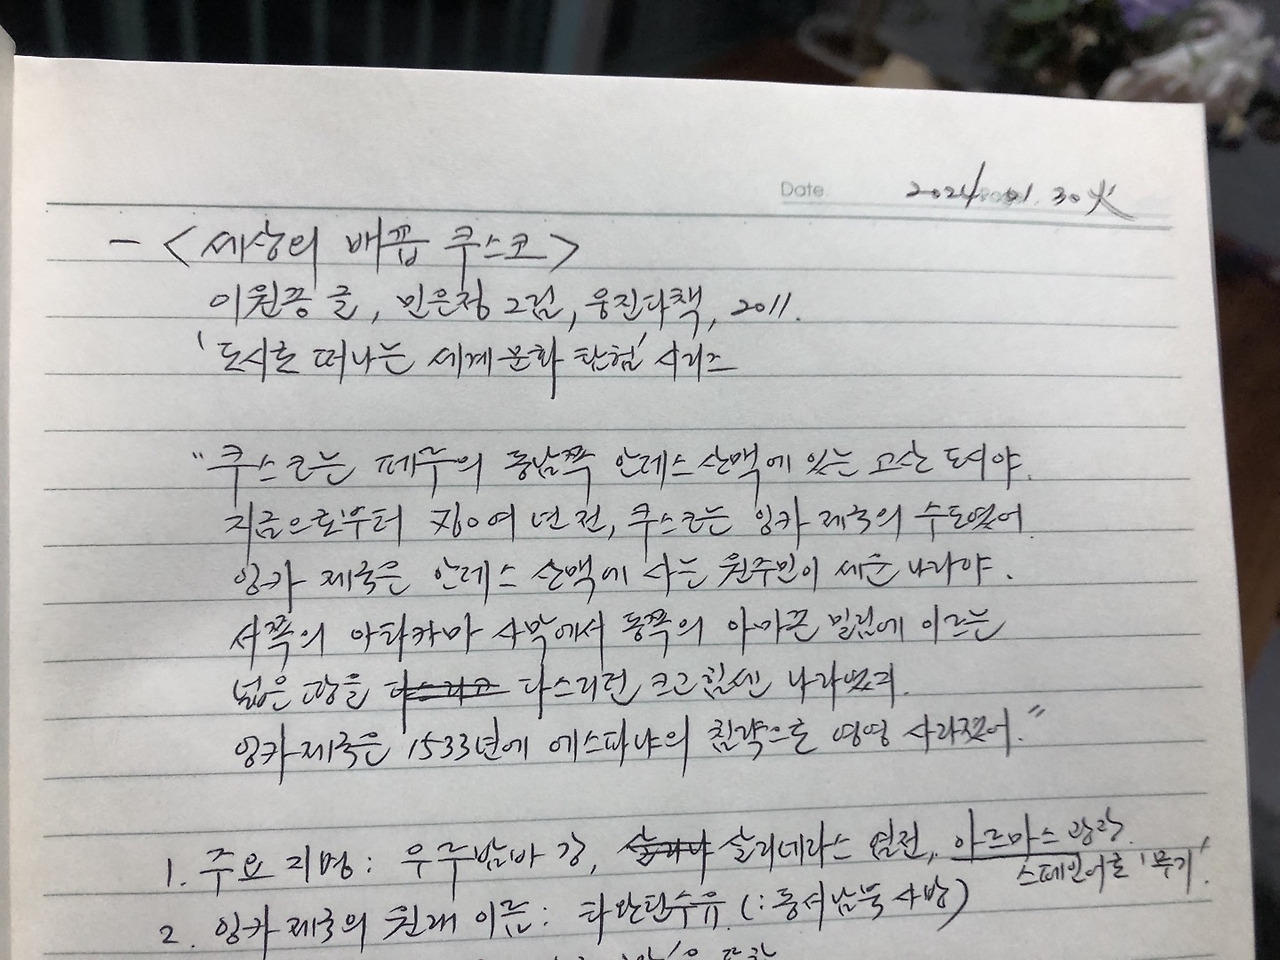 Date 2024. 01. 30 火
- <세상의 배꼽 쿠스코>
이원중 글, 민은정 그림, 웅진다책, 2011.
'도시로 떠나는 세계 문화 탐험' 시리즈
"쿠스코는 페루의 동남쪽 안데스 산맥에 있는 고산 도시야.
지금으로부터 500여 년 전, 쿠스코는 잉카 제국의 수도였어
잉카 제국은 안데스 산맥에 사는 원주민이 세운 나라야.
서쪽의 아타카마 사막에서 동쪽의 아마존 밀림에 이르는
넓은 땅을 다스리고 다스리던 크고 힘센 나라였지.
잉카 제국은 1533년에 에스파냐의 침략으로 영영 사라졌어."
1. 주요 지명: 우루밤바 강, 살리나 살리네라스 염전, 아르마스 광장.
스페인어로 '무기'.
2. 잉카 제국의 원래 이름: 타완틴수유 (: 동서남북 사방)